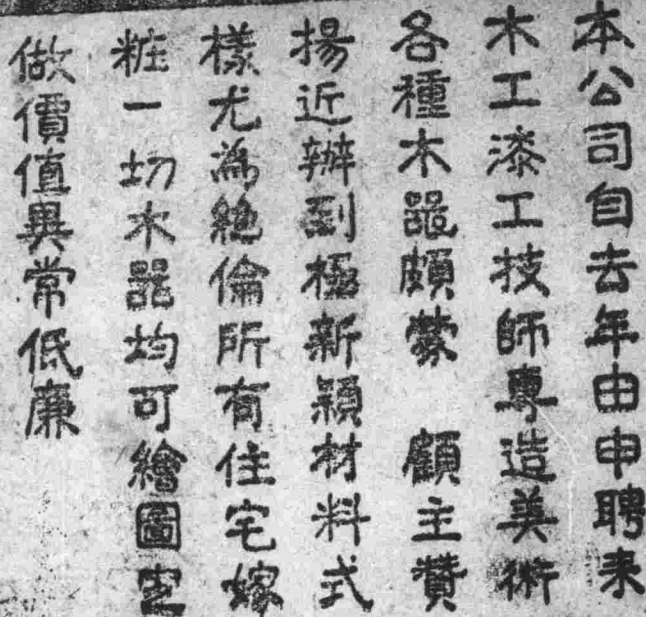 本公司自去年由申聘来
木工漆工技師專造美術
各種木器頗蒙　顧主贊
揚近辦到極新穎材料式
樣尤為絶倫所有住宅嫁
粧一切木器均可繪圖定
做價值異常低廉